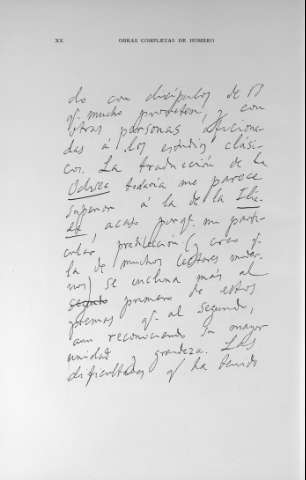 XX OBRAS COMPLETAS DE HOMERO
do con discípulos de
q. mucho prometen, y con
otras personas aficiona-
das á los estudios clási-
cos. La traducción de la
Odisea todavía me parece
superior á la de la Ilia-
da, acaso porq. mi parti-
cular predilección (y creo q.
la de muchos lectores moder-
nos) se inclina más al
segundo primero de estos
poemas q. al segundo,
aun reconociendo su mayor
unidad y grandeza. Las
dificultades q. ha tenido